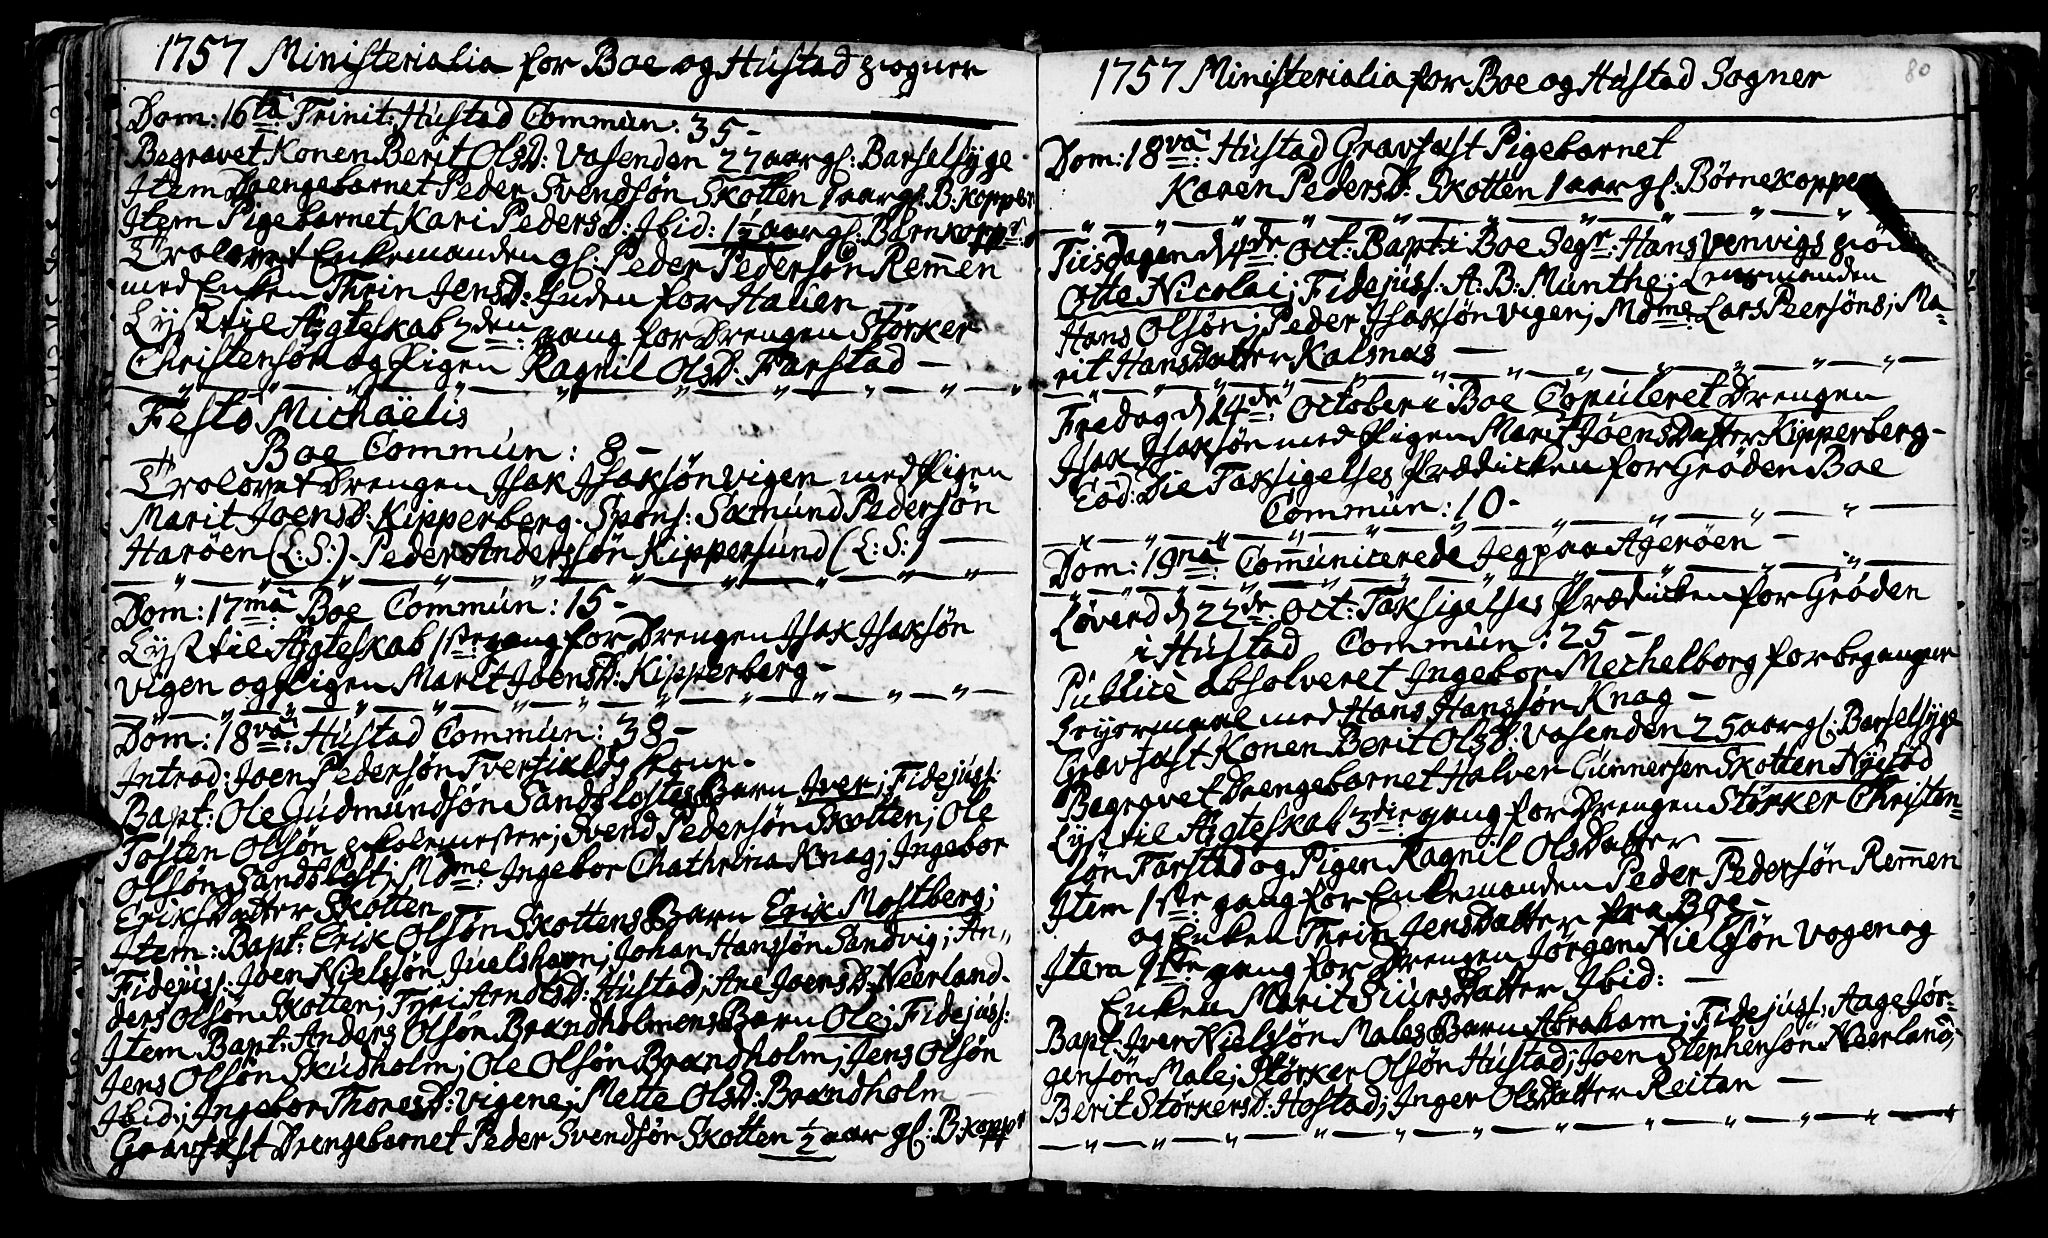 1757 Ministerialia for Boe og Hústad Sogner
Dom: 16ta Trinit: Hústad Commún: 35 -
Begravet Konen Berit OlsD: Vasenden 27 aar gl: Barselsÿge
Item Drengebarnet Peder Svendsøn Skotten 1 aar gl: B: kopper
Item Pigebarnet Kari PedersD: Ibid: 1½ aar gl: Barnkoppr:
Trolovet Enkemanden gl: Peder Pedersøn Rem̄en
med Enken Thrin JensD: Inden for Hauen -
Lÿst til Ægteskab 2den gang for Drengen Størker
Christensøn og Pigen Ragnil OlsD: Farstad -
Festo Michaëlis
Boe Commún: 8 -
Trolovet Drengen Isak Isaksøn Vigen med Pigen
Marit JoensD: Kipperberg. Spons: Sæmúnd Pedersøn
Harøen (L: S:) - Peder Anderssøn Kippersúnd (L: S:) -
Dom: 17ma Boe Commún: 15 -
Lÿst til Ægteskab 1ste gang for Drengen Isak Isaksøn
Vigen og Pigen Marit JoensD: Kipperberg -
Dom: 18va: Hústad Commún: 38 -
Introd: Joen Pedersøn Tverfialds Kone -
Bapt: Ole Gúdmúndsøn Sandslostes Barn Iver; Fidejúss:
Tosten Olsøn Skolemester; Svend Pedersøn Skotten; Ole
Olsøn Sandslost; Mdme: Ingebor Chathrina Knag; Ingebor
EriksDatter Skotten -
Item: Bapt: Erik Olsøn Skottens Barn Erik Mostberg;
Fidejúss: Joen Nielssøn Júelshavn; Johan Hanssøn Sandvig; An„
ders Olsøn Skotten; Tyri ArndsD: Hústad; Ane JoensD: Neerland.
Item Bapt: Anders Olsøn Brandholmens Barn Ole; Fidejúss:
Jens Olsøn Skúdholm; Ole Olsøn Brandholm; Jens Olsøn
Ibid:; Ingebor ThoresD: Vigene; Mette OlsD: Brandholm
Gravfæst Drengebarnet Peder Svendsøn Skotten ½ aar gl: B: koppr
1757 Ministerialia for Boe og Hústad Sogner
80
Dom: 18va: Hústad Gravfæst Pigebarnet
Karen PedersD: Skotten 1 aar gl: Børnekopper
Tiisdagen d 4de: Oct: Bapt: i Boe Segr: Hans Venvigs
Otte Nicolai; Fidejúss: A: B: Munthe; Lensmanden
Hans Olsøn; Peder Isaksøn Vigen; Mdme: Lars Peersøns; Ma-
rit HansDatter Kalsnes -
Fredag d 14de: October i Boe Copúleret Drengen
Isak Isaksøn med Pigen Marit JoensDatter Kipperberg -
Eod: Die Taksigelses Prædicken for Grøden Boe
Commún: 10 -
Dom: 19na: Com̄únicerede Jeg paa Agerøen -
Løverd d 22de: Oct: Taksigelses Prædicken for Grøden
i Hústad Commún: 25 -
Públicè absolveret Ingebor Mechelborg for begangne
Leÿermaal med Hans Hanssøn Knag -
Gravfæst Konen Berit OlsD: Vasenden 25 aar gl: Barselsÿge
Begravet Drengebarnet Halver Gúnnersen Skotten Nÿefød
Lÿst til Ægteskab 3die gang for Drengen Størker Christen-
søn Farstad og Pigen Ragnil OlsDatter -
Item 1ste: gang for Enkemanden Peder Pedersøn Rem̄en
og Enken Thrin JensDatter fra Boe -
Item 1ste gang for Drengen Jørgen Nielssøn Vogen og
Enken Marit SiúrsDatter Ibid: -
Bapt: Iver Nielssøn Males Barn Abraham; Fidejúss: Aage Jør-
gensøn Male; Størker Olsøn Hústad; Joen Stephensøn Neerland;
Berit StørkersD: Hostad; Inger OlsDatter Reitan -